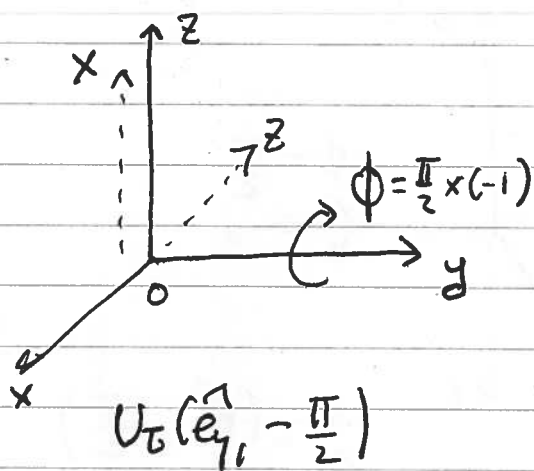 z
x
z
ϕ = π/2 × (-1)
y
0
x
U_τ(ê_y, -π/2)